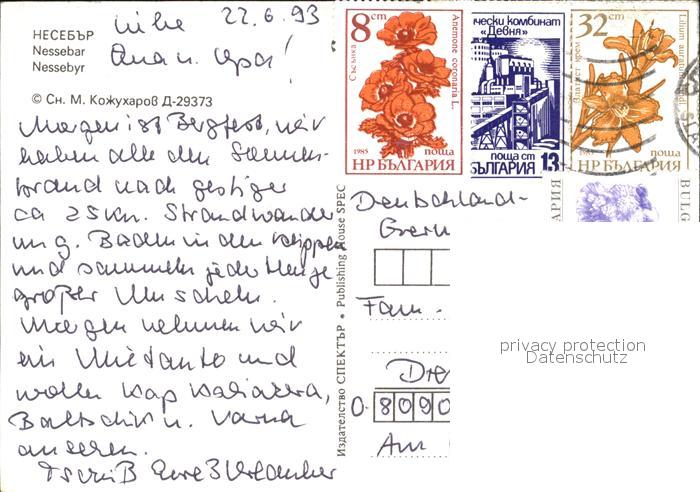 22.6.93
Liebe
Oma u. Opa!
НЕСЕБЪР
Nessebar
Nessebyr
© Сн. М. Кожухаров Д-29373
Morgen ist Bergfest, wir
haben alle den Sonnen-
brand nach gestriger
ca 25km. Strandwander
ung. Baden in den Klippen
und sammeln jede Menge
großer Muscheln.
Morgen nehmen wir
ein Mietauto und
wollen Kap Kaliakra,
Baltschik u. Varna
ansehen.
Tschüß Eure 3 Urlauber
Издателство СПЕКТЪР • Publishing House SPEC
8 cm
Съсънка
Anemone coronaria L.
1985 поща
НР БЪЛГАРИЯ
чески комбинат
«Девня»
поща cm
БЪЛГАРИЯ 13
32 cm
Златист крем
Lilium auratum
1985 поща
НР БЪЛГАРИЯ
АРИЯ
BULG
Deutschland-
Fam.
Dre
0-8090
Am
privacy protection
Datenschutz